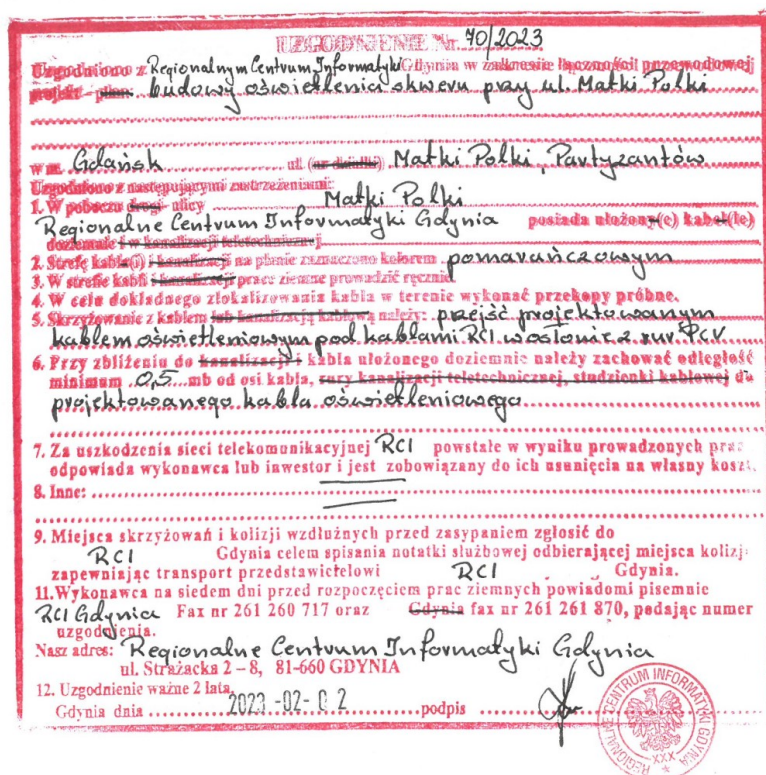 UZGODNIENIE Nr 70/2023
Uzgodniono z Regionalnym Centrum Informatyki Gdynia w zakresie łączności przewodowej
projekt - plan budowy oświetlenia skweru przy ul. Matki Polki
w m. Gdańsk ul. (nr działki) Matki Polki, Partyzantów
Uzgodniono z następującymi zastrzeżeniami:
1. W poboczu drogi ulicy Matki Polki
Regionalne Centrum Informatyki Gdynia posiada ułożony(e) kabel(le)
doziemnie i w kanalizacji teletechnicznej
2. Strefę kabla(i) i kanalizacji na planie zaznaczono kolorem pomarańczowym
3. W strefie kabli i kanalizacji prace ziemne prowadzić ręcznie.
4. W celu dokładnego zlokalizowania kabla w terenie wykonać przekopy próbne.
5. Skrzyżowanie z kablem lub kanalizacją kablową należy: przejść projektowanym
kablem oświetleniowym pod kablami RCI w osłonie z rur PCV
6. Przy zbliżeniu do kanalizacji i kabla ułożonego doziemnie należy zachować odległość
minimum 0,5 mb od osi kabla, rury kanalizacji teletechnicznej, studzienki kablowej do
projektowanego kabla oświetleniowego
7. Za uszkodzenia sieci telekomunikacyjnej RCI powstałe w wyniku prowadzonych prac
odpowiada wykonawca lub inwestor i jest zobowiązany do ich usunięcia na własny koszt.
8. Inne:
9. Miejsca skrzyżowań i kolizji wzdłużnych przed zasypaniem zgłosić do
RCI Gdynia celem spisania notatki służbowej odbierającej miejsca kolizji
zapewniając transport przedstawicielowi RCI Gdynia.
11. Wykonawca na siedem dni przed rozpoczęciem prac ziemnych powiadomi pisemnie
RCI Gdynia Fax nr 261 260 717 oraz Gdynia fax nr 261 261 870, podając numer
uzgodnienia.
Nasz adres: Regionalne Centrum Informatyki Gdynia
ul. Strażacka 2 – 8, 81-660 GDYNIA
12. Uzgodnienie ważne 2 lata.
Gdynia dnia 2023 -02- 02 podpis
REGIONALNE CENTRUM INFORMATYKI GDYNIA
XXX